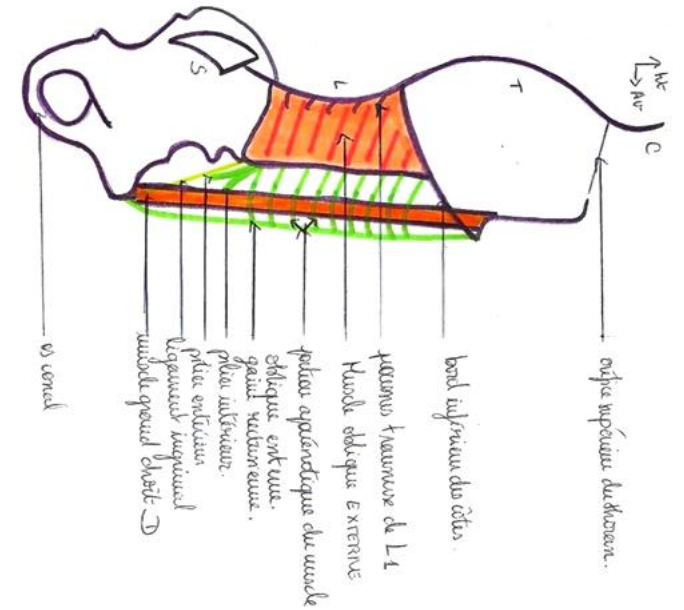 ht
Av
C
T
L
S
orifice supérieur du thorax.
bord inférieur des côtes.
processus transverse de L1
Muscle oblique EXTERNE
portion aponévrotique du muscle
oblique externe.
gaine rectusienne.
pilier intérieur.
pilier extérieur
ligament inguinal
muscle grand droit D
os coxal